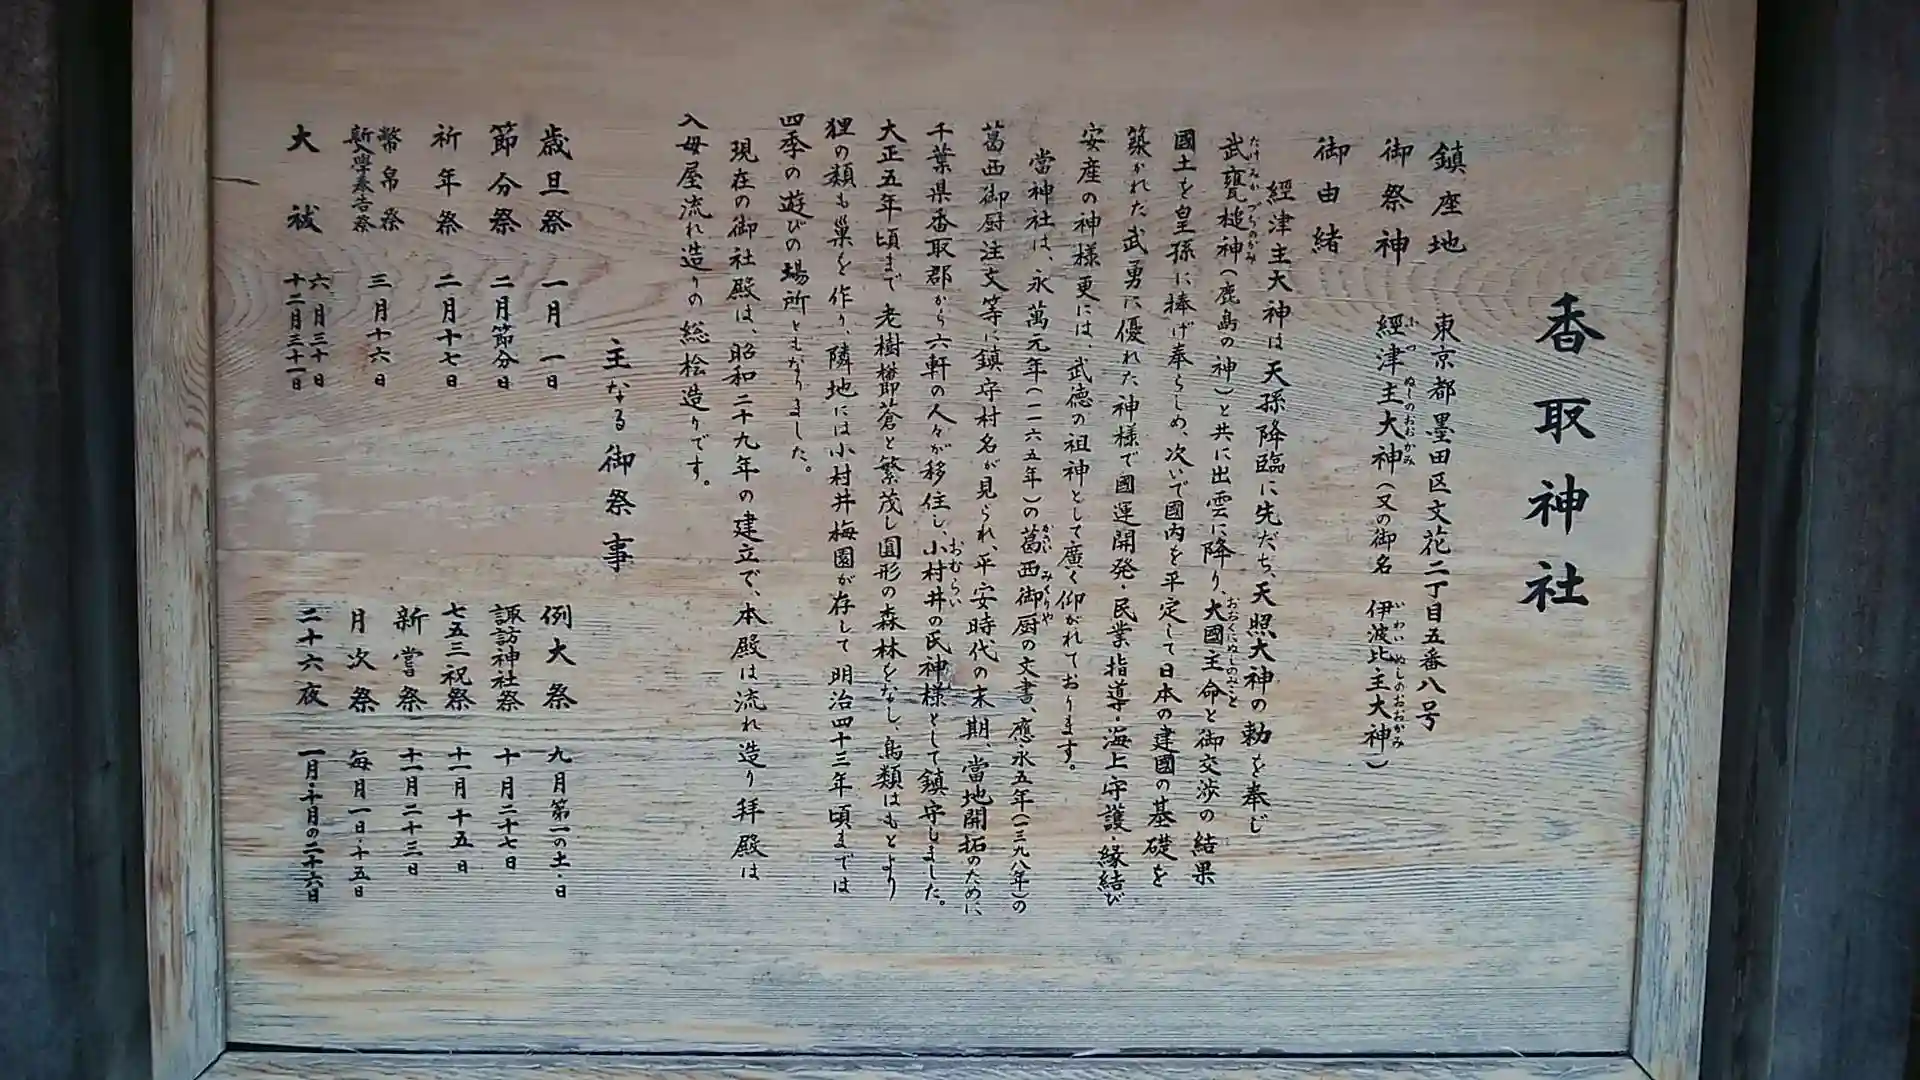 香取神社
鎮座地 東京都墨田区文花二丁目五番八号
御祭神 經津主大神(又の御名 伊波比主大神)
御由緒
經津主大神は天孫降臨に先だち、天照大神の勅を奉じ
武甕槌神(鹿島の神)と共に出雲に降り、大國主命と御交渉の結果
國土を皇孫に捧げ奉らしめ、次いで國内を平定して日本の建國の基礎を
築かれた武勇に優れた神様で國運開発・民業指導・海上守護・縁結び
安産の神様更には、武徳の祖神として廣く仰がれております。
當神社は、永萬元年(一一六五年)の葛西御厨の文書、應永五年(一三九八年)の
葛西御厨注文等に鎮守村名が見られ、平安時代の末期、當地開拓のために、
千葉県香取郡から六軒の人々が移住し、小村井の氏神様として鎮守しました。
大正五年頃まで老樹欝蒼と繁茂し圓形の森林をなし、鳥類はもとより
狸の類も巣を作り、隣地には小村井梅園が存して明治四十三年頃までは
四季の遊びの場所ともなりました。
現在の御社殿は、昭和二十九年の建立で、本殿は流れ造り拝殿は
入母屋流れ造りの総桧造りです。
主なる御祭事
歳旦祭 一月一日
節分祭 二月節分日
祈年祭 二月十七日
幣帛祭
新入學奉告祭 三月十六日
大祓 六月三十日
十二月三十一日
例大祭 九月第一の土・日
諏訪神社祭 十月二十七日
七五三祝祭 十一月十五日
新嘗祭 十一月二十三日
月次祭 毎月一日・十五日
二十六夜 一月・十月の二十六日